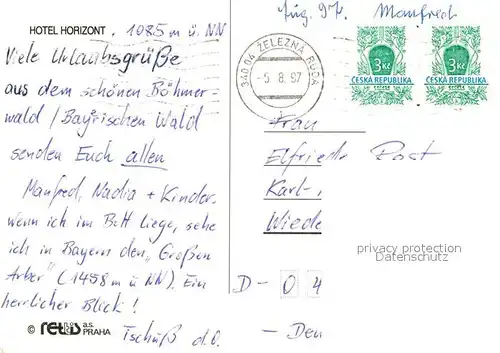 HOTEL HORIZONT . 1085 m ü. NN
Viele Urlaubsgrüße
aus dem schönen Böhmer-
wald / Bayrischen Wald
senden Euch allen
Manfred, Nadia + Kinder.
wenn ich im Bett liege, sehe
ich in Bayern den "Großen
Arber" (1458 m ü NN). Ein
herrlicher Blick!
Tschüß d.O.
© a.s.
PRAHA
Aug. 97. Manfred
340 04 ŽELEZNÁ RUDA
- 5. 8. 97
3 Kč
ČESKÁ REPUBLIKA
3 Kč
ČESKÁ REPUBLIKA
Frau
Elfriede Post
Karl-,
Wiede
privacy protection
Datenschutz
D - 0 4
- Den